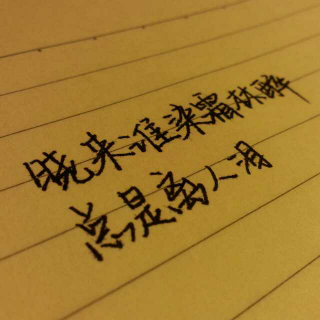 晓来谁染霜林醉
总是离人泪